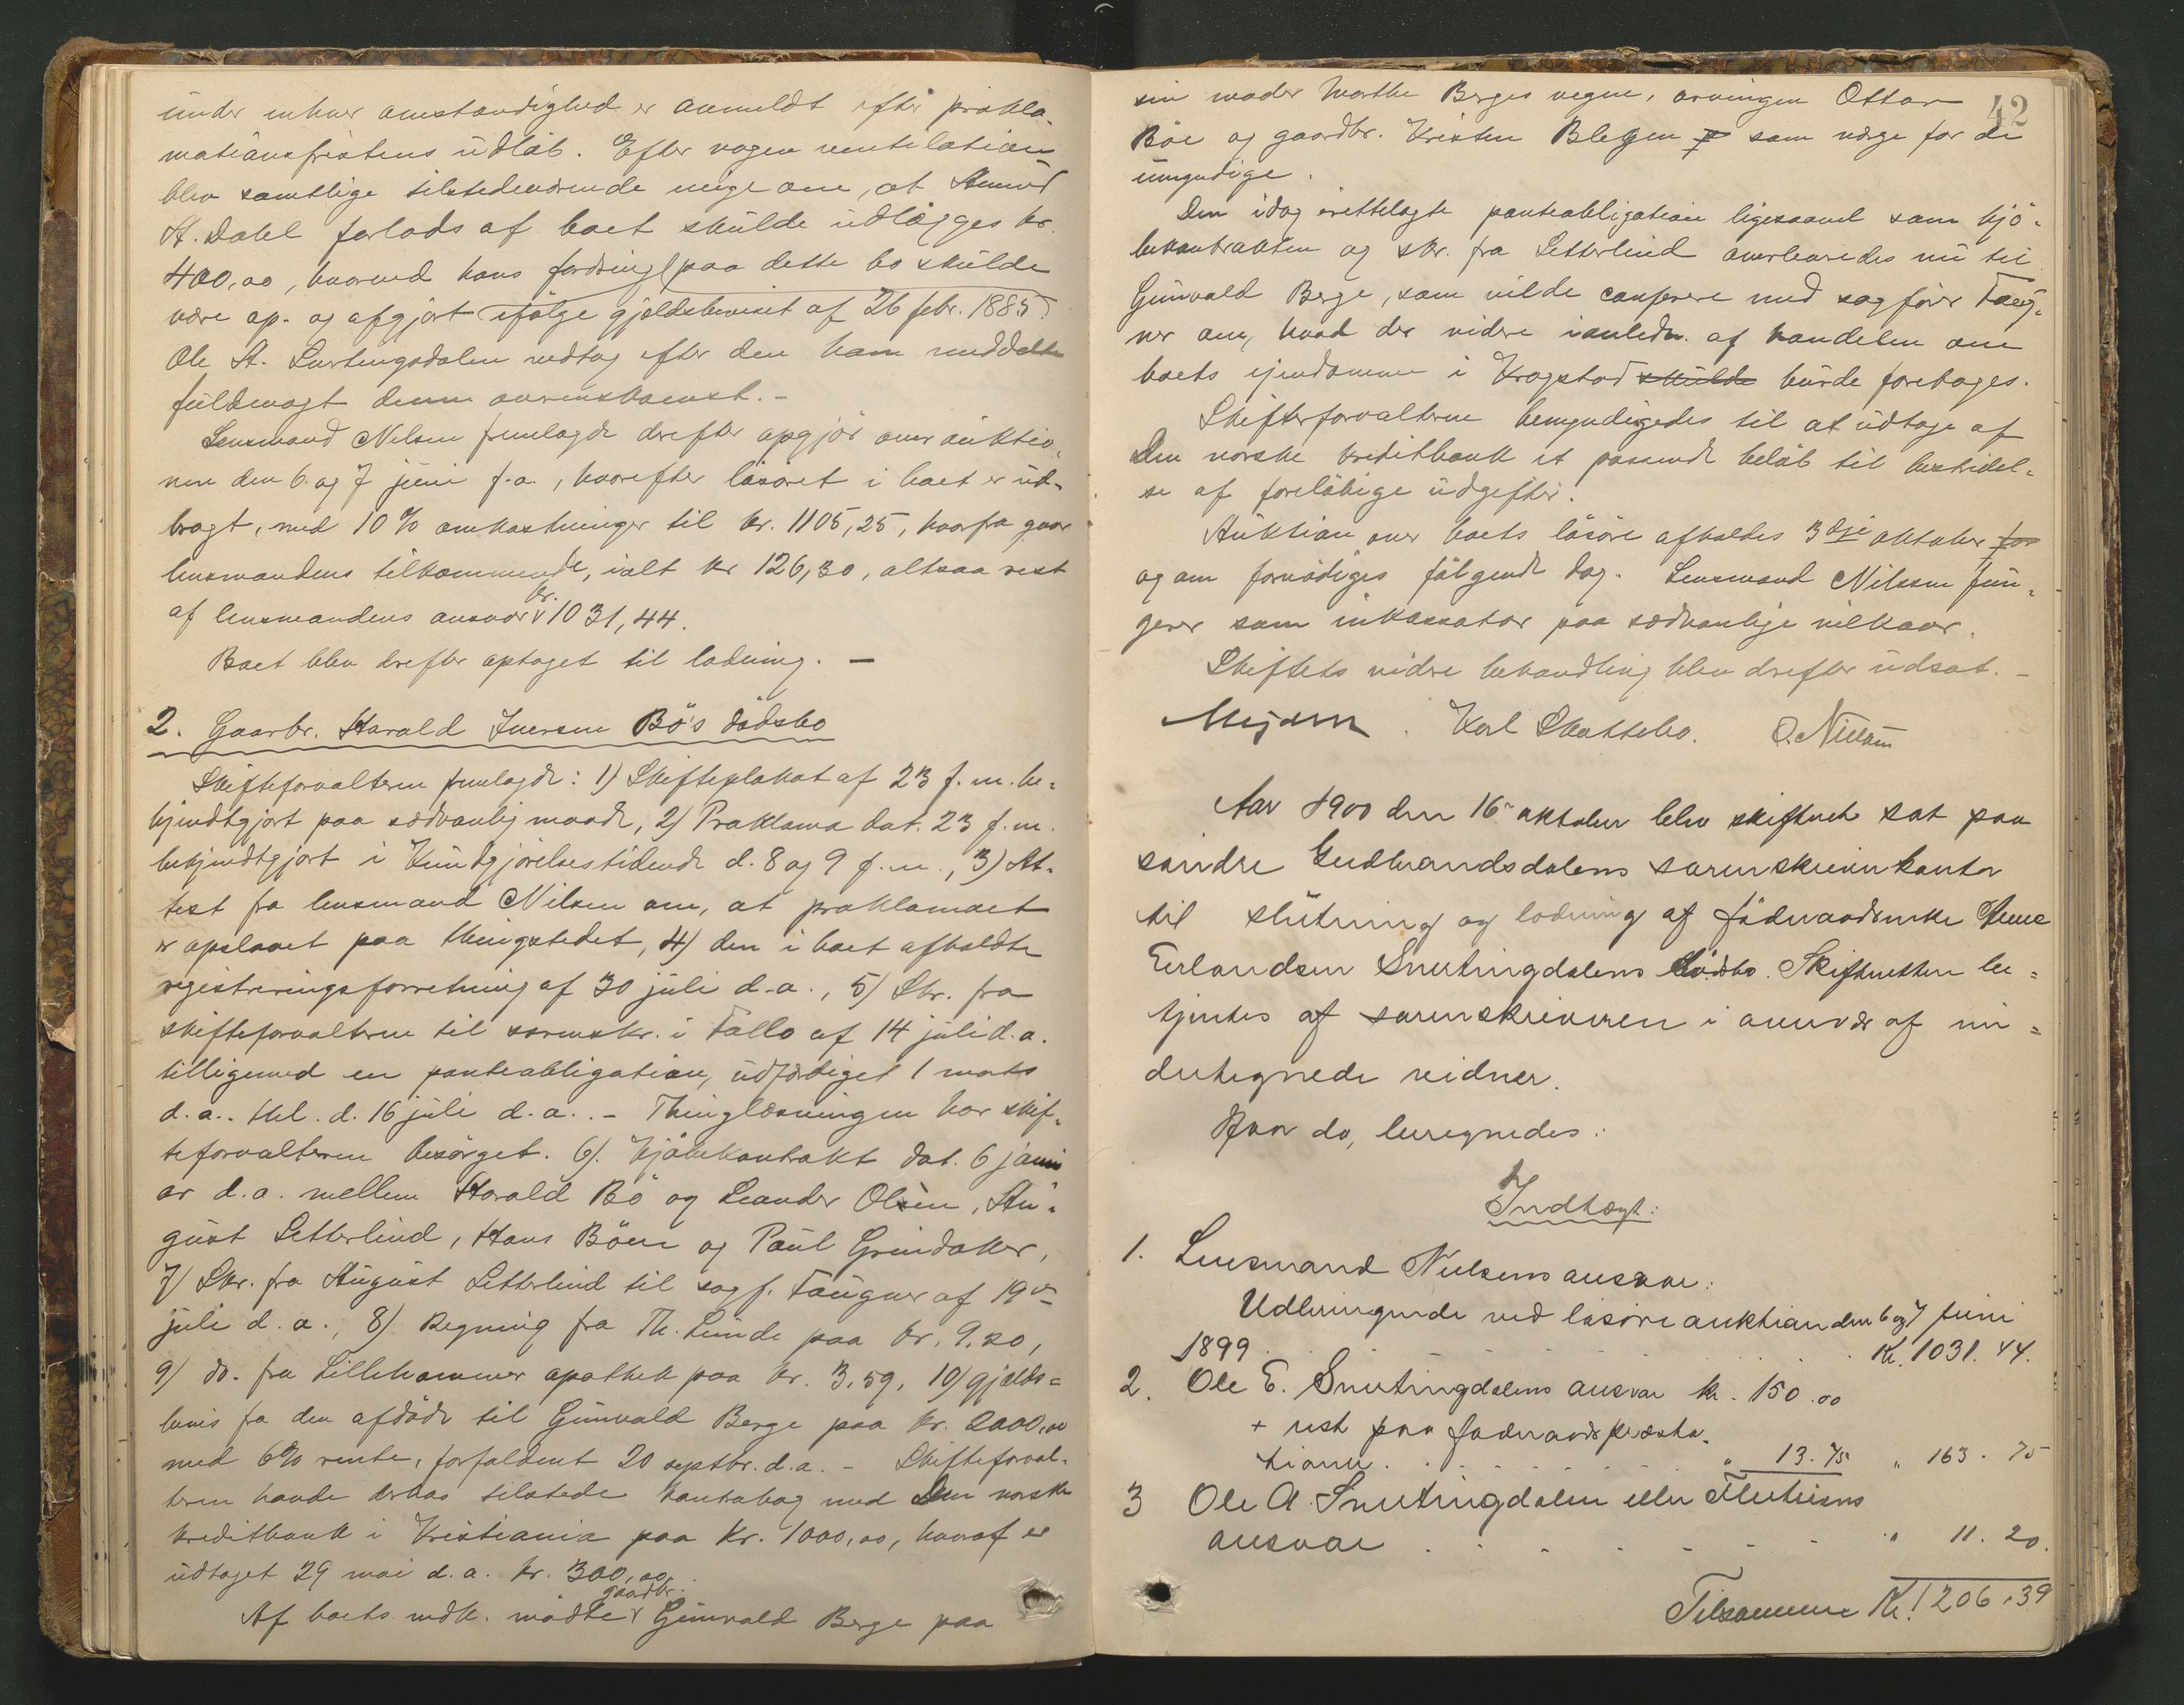 under enhver omstændighed er anmeldt efter prokla-
mationsfristens udløb. Efter nogen ventilation
blev samtlige tilstedeværende enige om, at Amund
A. Dahl forlods af boet skulde udlægges kr.
400,00, hvormed hans fordring (paa dette bo skulde
være op- og afgjort ifølge gjeldsbeviset af 26 febr. 1885).
Ole A. Snertingdalen vedtog efter den ham meddelte
fuldmagt denne overenskomst. -
Lensmand Nilsen fremlagde derefter opgjør over auktio-
nen den 6. og 7 juni f.a., hvorefter løsøret i boet er ud-
bragt, med 10 % omkostninger til kr. 1105,25, hvorfra gaar
lensmandens tilkommende, ialt kr 126,30, altsaa rest
af lensmandens ansvar kr. 1031,44.
Boet blev derefter optaget til lodning. -
2. Gaarbr. Harald Iversen Bö's dødsbo
Skifteforvalteren fremlagde: 1) Skifteplakat af 23 f.m. be-
kjendtgjort paa sædvanlig maade, 2) Proklama dat. 23 f.m.
bekjendtgjort i Kundgjörelsestidende d. 8 og 9 f.m., 3) At-
test fra lensmand Nilsen om, at proklamaet
er opslaaet paa thingstedet, 4) den i boet afholdte
registreringsforretning af 30 juli d.a., 5) Skr. fra
skifteforvalteren til sorenskr. i Follo af 14 juli d.a.
tilligemed en panteobligation, udfærdiget 1 marts
d.a. thl. d. 16 juli d.a. - Thinglæsningen har skif-
teforvalteren besørget. 6). Kjöbekontrakt dat. 6 janu
ar d.a. mellem Harald Bö og Leander Olsen, Au-
gust Setterlind, Hans Böen og Paul Grindaker,
7) Skr. fra August Setterlind til sagf. Taugner af 19de
juli d.a., 8) Regning fra Th. Lunde paa kr. 9.20,
9) do. fra Lillehammer apothek paa kr. 3,59, 10) gjælds-
bevis fra den afdøde til Gunvald Berge paa kr. 2000,00
med 6% rente, forfaldent 20 septbr. d.a. - Skifteforval-
teren havde derhos tilstede kontrabog med Den norske
kreditbank i Kristiania paa kr. 1000,00, hvoraf er
udtaget 29 mai d.a. kr. 300,00.
Af boets vedk. mødte gaardbr. Gunvald Berge paa
42
sin moder Marthe Berges vegne, arvingen Ottar
Böe og gaardbr. Kristen Blegen som værge for de
umyndige.
Den idag irettelagte panteobligation ligesaavel som kjö-
bekontrakten og skr. fra Setterlind overleveredes nu til
Gunvald Berge, som vilde conferere med sagfører Taug-
ner om, hvad der videre i anledn. af handelen om
boets eiendomme i Kragstad skulde burde foretages.
Skifteforvalteren bemyndigedes til at udtage af
Den norske kreditbank et passende beløb til bestridel-
se af foreløbige udgifter.
Auktion over boets løsøre afholdes 3dje oktober for
og om fornødiges følgende dag. Lensmand Nilsen fun-
gerer som inkassator paa sædvanlige vilkaar.
Skiftets videre behandling blev derefter udsat. -
Mejdell. Karl Skattebo. O. Nielsen
Aar 1900 den 16 oktober blev skifteret sat paa
søndre Gudbrandsdalens sorenskriverkontor
til slutning og lodning af föderaadsenke Anne
Erlandsen Snertingdalens dødsbo. Skifteretten be-
tjentes af sorenskriveren i overvær af un-
dertegnede vidner.
Hvor da, beregnedes:
Indtægt:
1. Lensmand Nielsens ansvar:
Udbringende ved løsøreauktion den 6 og 7 Juni
1899 . . . . . Kr. 1031. 44.
2. Ole E. Snertingdalens ansvar kr. 150.00
+ rest paa føderaadspræsta-
tionen . . . . " 13.75 " 163. 75
3 Ole A. Snertingdalen eller Fluthiens
ansvar . . . . . . " 11. 20.
Tilsammen Kr. 1206.39